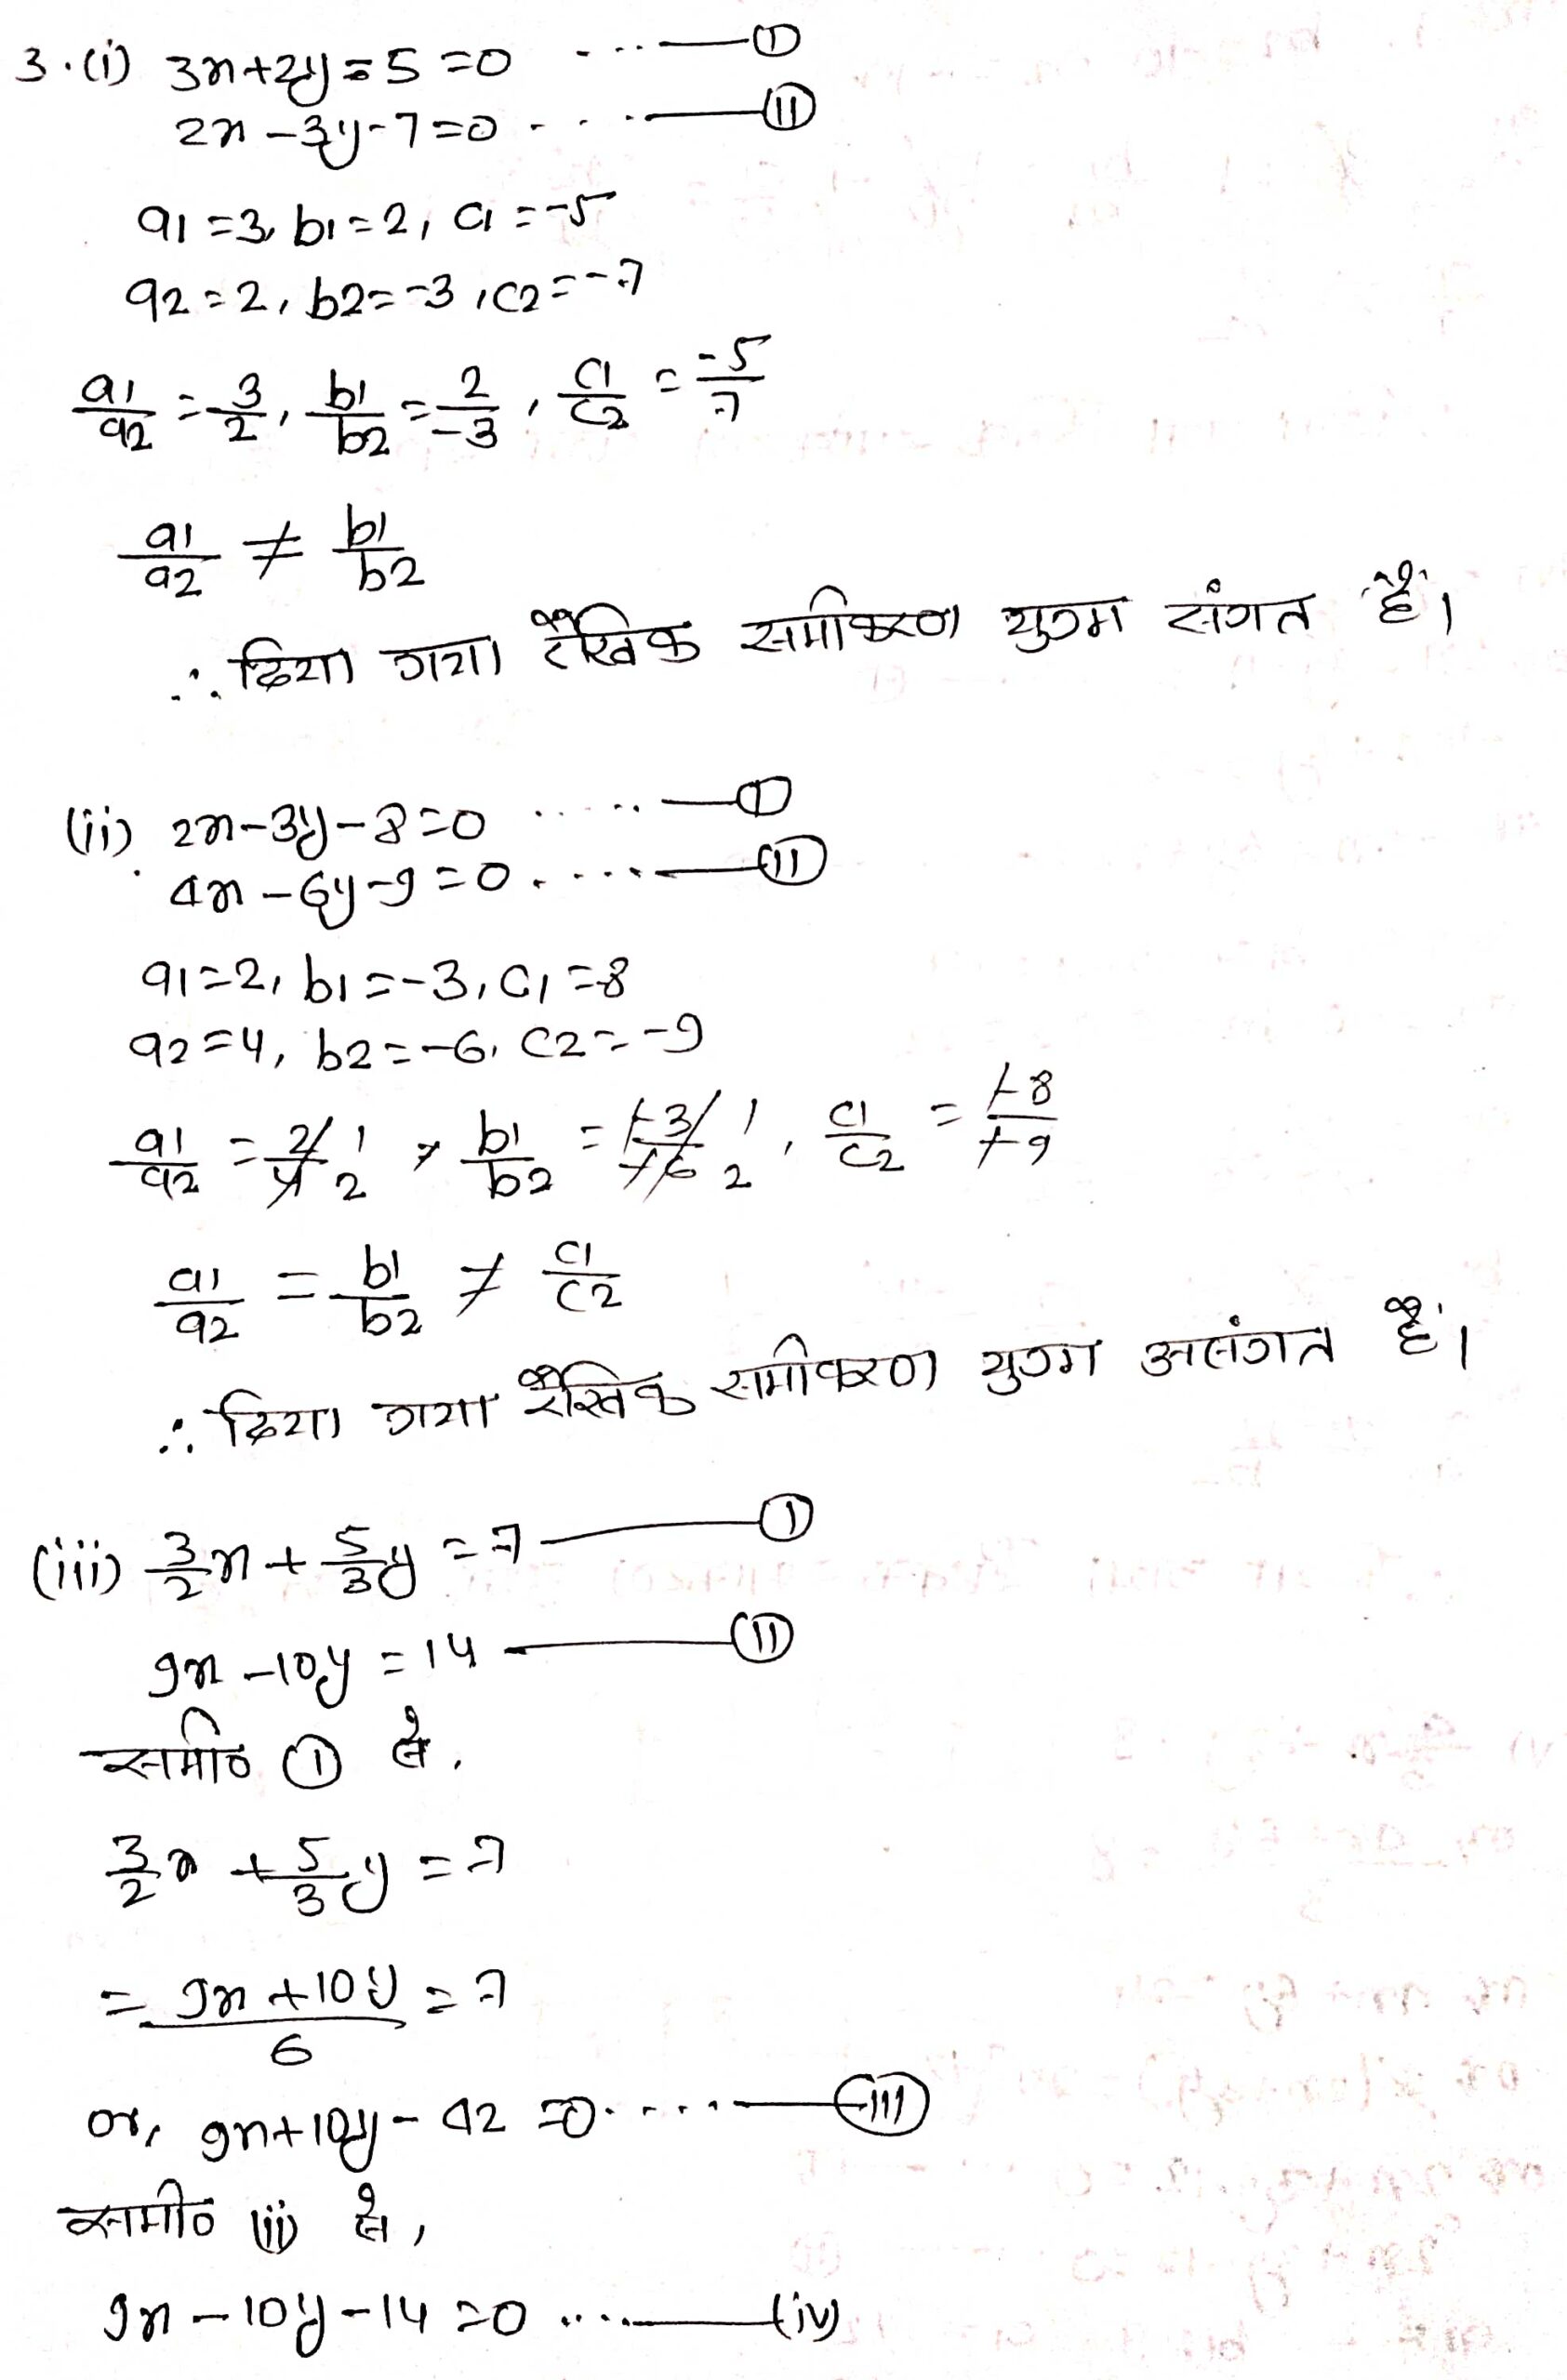 3.(i) 3x+2y=5=0 ...—(I)
2x-3y-7=0 ...—(II)
a1=3, b1=2, c1=-5
a2=2, b2=-3, c2=-7
a1/a2 = 3/2, b1/b2 = 2/-3, c1/c2 = -5/7
a1/a2 ≠ b1/b2
∴ दिया गया रैखिक समीकरण युग्म संगत हैं।
(ii) 2x-3y-8=0 .....—(I)
4x-6y-9=0.....—(II)
a1=2, b1=-3, c1=-8
a2=4, b2=-6, c2=-9
a1/a2 = 2/4 1/2, b1/b2 = -3/-6 1/2, c1/c2 = -8/-9
a1/a2 = b1/b2 ≠ c1/c2
∴ दिया गया रैखिक समीकरण युग्म असंगत हैं।
(iii) 3/2x + 5/3y = 7 —(I)
9x-10y=14 —(II)
समी० (I) से,
3/2x + 5/3y = 7
= 9x+10y/6 = 7
or, 9x+10y-42=0.....—(III)
समी० (ii) से,
9x-10y-14=0 ....—(iv)